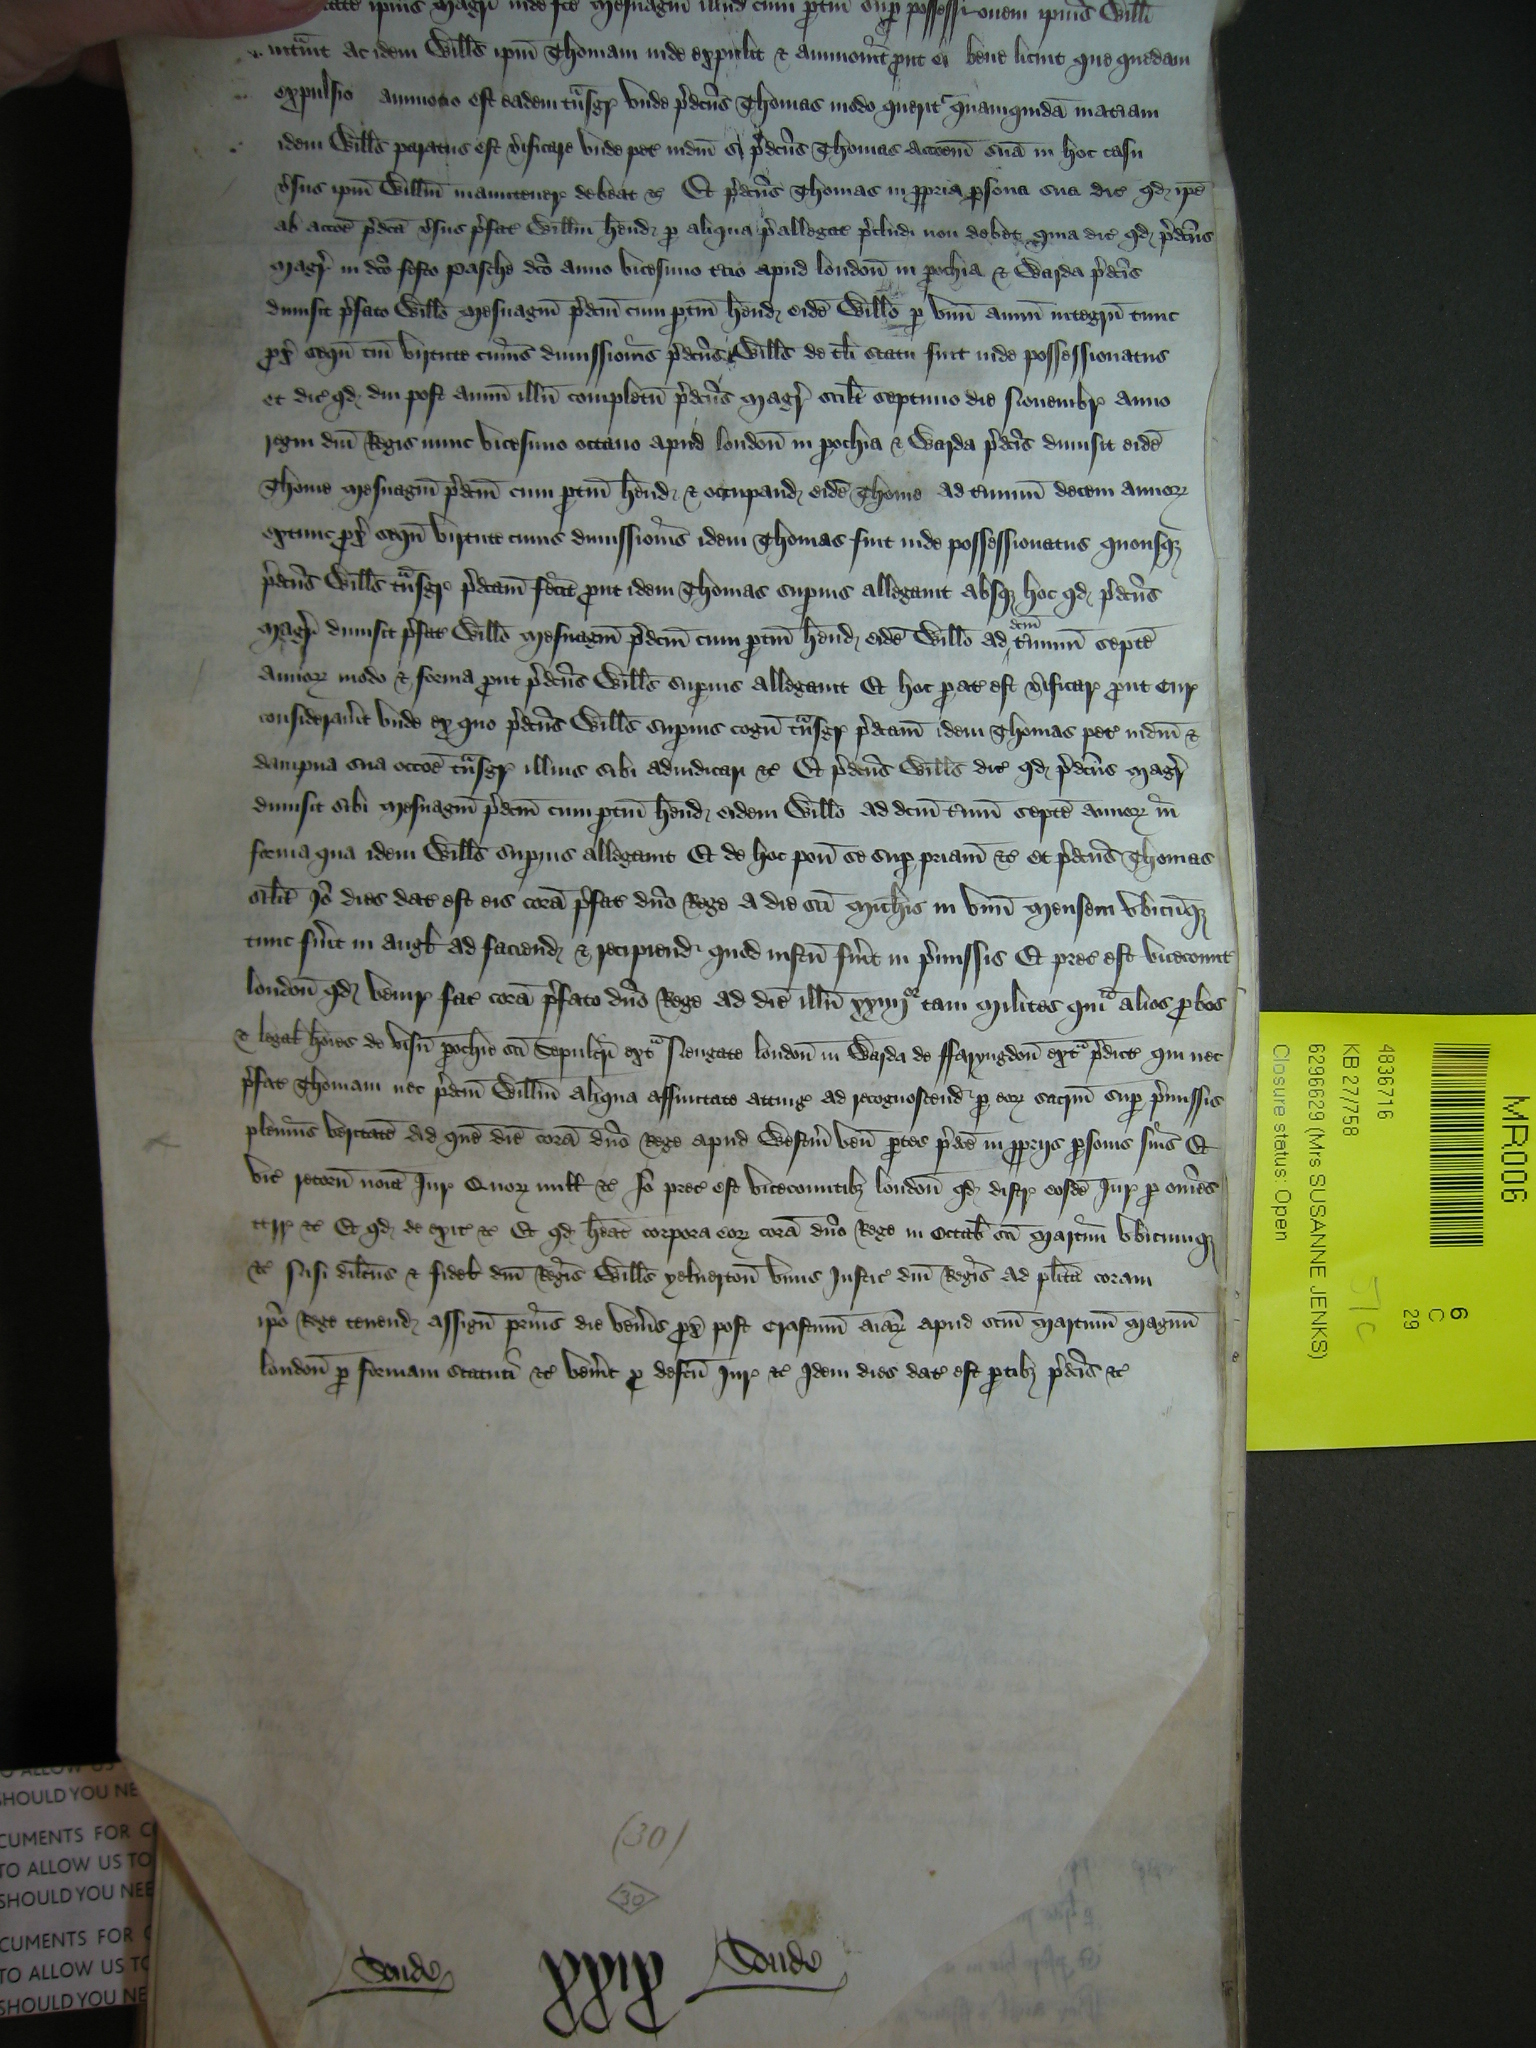 ipius Magri inde fce mesuagm illud cum ptin sup possessionem ipius Willi
intavit ac idem Wills ipm Thomam inde expulit & ammovit put ei bene licuit que quedam
expulsio ammocio est eadem tnsgr unde pdcus Thomas modo querit quamquidm matiam
idem Wills paratus est vificare unde pet iudm si pdcus Thomas accoem suam in hoc casu
vsus ipm Willm manutener debeat &c Et pdcus Thomas in ppria psona sua dic qd ipe
ab accoe pdca vsus pfat Willm hend p aliqua pallegat pcludi non debet quia dic qd pdcus
Magr in dco festo Pasche dco anno vicesimo tcio apud london in pochia & Warda pdcis
dimisit pfato Willo mesuagm pdcm cum ptin hend eide Willo p unu annu integru tunc
px sequ virtute cuius dimissionis pdcus Wills de tli statu fuit inde possessionatus
et dic qd diu post annu illu completu pdcus Magr scilt septimo die Novembr anno
regni dni Regis nunc vicesimo octavo apud london in pochia & Warda pdcis dimisit eide
Thome mesuagm pdcm cum ptin hend & occupand eide Thome ad tminu decem annor
extunc px sequ virtute cuius dimissionis idem Thomas fuit inde possessionatus quousq
pdcus Wills tnsgr pdcam fecit put idem Thomas supius allegavit absq hoc qd pdcus
Magr dimisit pfat Willo mesuagm pdcm cum ptin hend eide Willo ad dcm tminu septe
annor modo & forma put pdcus Wills supius allegavit Et hoc pat est vificar put Cur
consideravit unde ex quo pdcus Wills supius cogn tnsgr pdcam idem Thomas pet iudm &
dampna sua occoe tnsgr illius sibi adiudicari &c Et pdcus Wills dic qd pdcus Magr
dimisit sibi mesuagm pdcm cum ptin hend eidem Willo ad dcm tminu septe annor in
forma qua idem Wills supius allegavit Et de hoc pon se sup priam &c et pdcus Thomas
silit Io dies dat est eis cora pfat dno Rege a die sci Michis in unu mensem ubicuq
tunc fuit in angl ad faciend & recipiend quod iustu fuit in pmissis Et prec est vicecomit
london qd venir fac cora pfato dno Rege ad die illu xxiiij tam milites qm alios pbos
& legal hoies de visn pochie sci Sepulcri ext Neugate london in Warda de ffaryngdon ext pdict qui nec
pfat Thomam nec pdcm Willm aliqua affinitate atting ad recognoscend p eor sacrm sup pmissis
plenius veritate Ad que die cora dno Rege apud Westm ven ptes pdce in pprijs psonis suis Et
vic retorn noia Jur Quor null &c Io prec est vicecomitib london qd distr eosde Jur p omes
terr &c Et qd de exit &c Et qd heat corpora eor cora dno Rege in Octab sci Martini ubicumq
&c Nisi dilcus & fidel dni Regis Wills yeluerton unus Justic dni Regis ad plita coram
ipo Rege tenend assign prius die venis px post Crastinu aiar apud scm Martinu magnu
london p formam statuti &c venit p defcu Jur &c Idem dies dat est ptib pdcis &c
(30)
30
Sonde xxix Sonde
MR006
4836716
KB 27/758
6296629 (Mrs SUSANNE JENKS)
Closure status: Open
6
C
29
51c
TO ALLOW US
SHOULD YOU NE
CUMENTS FOR C
TO ALLOW US TO
SHOULD YOU NEE
CUMENTS FOR C
TO ALLOW US TO
SHOULD YOU NE